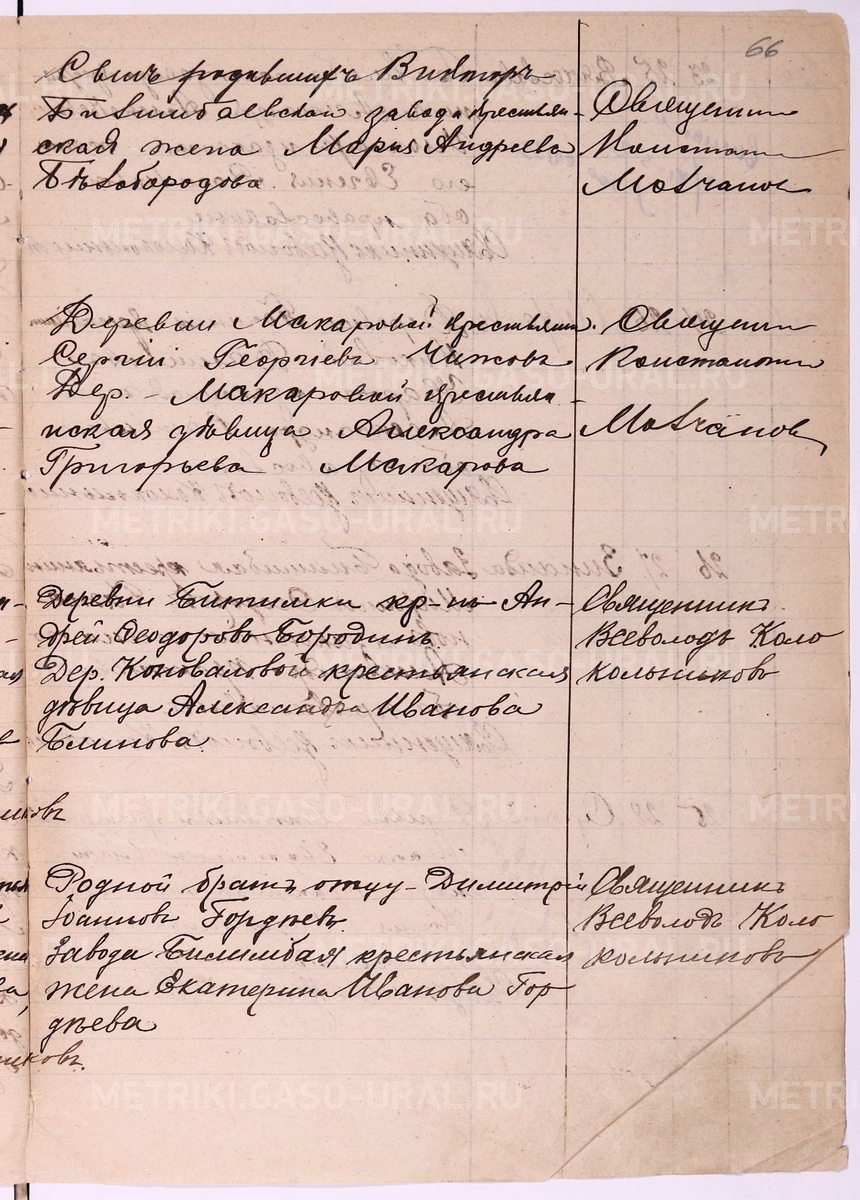 66
Сынъ родившихъ Викторъ
Билимбаевскаго завода крестьян-
ская жена Марія Андреева
Бѣлобородова
Священник
Констант
Молчанов
Деревни Макаровой крестьянин.
Сергій Георгіевъ Чижовъ
Дер. - Макаровой крестья-
нская дѣвица Александра
Григорьева Макарова
Священник
Константин
Молчанов
Деревни Битимки кр-нъ Ан-
дрей Ѳеодоровъ Бородинъ
Дер. Коноваловой крестьянская
дѣвица Александра Иванова
Блинова
Священникъ
Всеволодъ Коло
кольниковъ
Родной братъ отцу - Димитрій
Іоанновъ Гордѣевъ.
Завода Билимбая крестьянская
жена Екатерина Иванова Гор
дѣева
Священникъ
Всеволодъ Коло
кольниковъ
METRIKI.GASO-URAL.RU